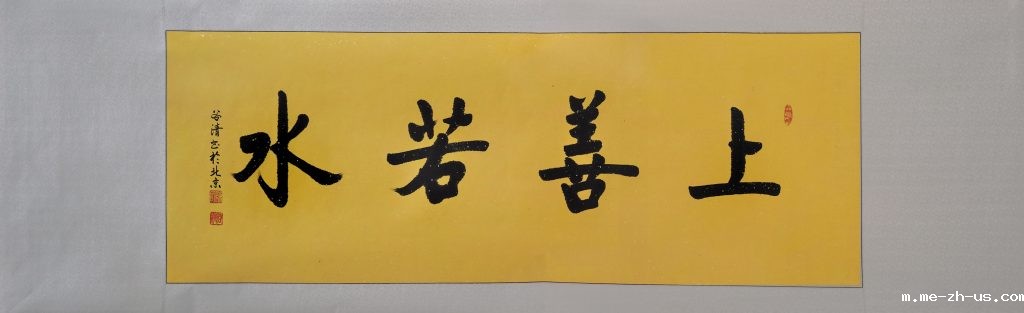 上善若水
谷清书於北京
m.me-zh-us.com